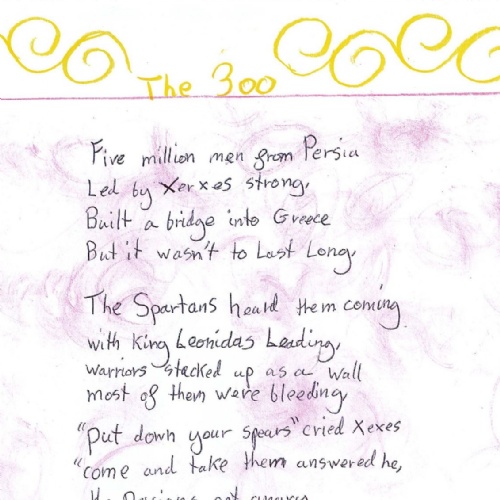 The 300
Five million men from Persia
Led by Xerxes strong,
Built a bridge into Greece
But it wasn't to Last Long,
The Spartans heard them coming
with King Leonidas Leading,
warriors stacked up as a wall
most of them were bleeding
"put down your spears" cried Xexes
"come and take them answered he,